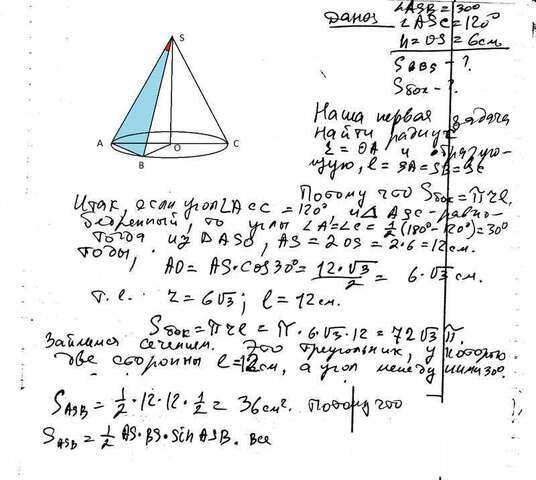 Дано:
∠ASB = 30°
∠ASC = 120°
h = OS = 6см
S ABS - ?
Sбок - ?
S
A
B
O
C
Наша первая задача
найти радиус
r = OA и образую-
щую, l = SA = SB = SC
Потому что Sбок = πrl.
Итак, если угол ∠ACC = 120° и Δ ASC - равно-
бедренный, то углы ∠A = ∠C = ½(180° - 120°) = 30°
Тогда из ΔASO, AS = 2OS = 2·6 = 12см.
тогды,
AO = AS·cos30° = 12·√3/2 = 6·√3 см.
т.е. r = 6√3; l = 12см.
Sбок = πrl = π·6√3·12 = 72√3 π.
Займимся сечением. Это треугольник, у которого
две стороны l = 12см, а угол между ними 30°.
S ASB = ½·12·12·½ = 36см². Потому что
S ASB = ½ AS·BS·sin ASB. Все